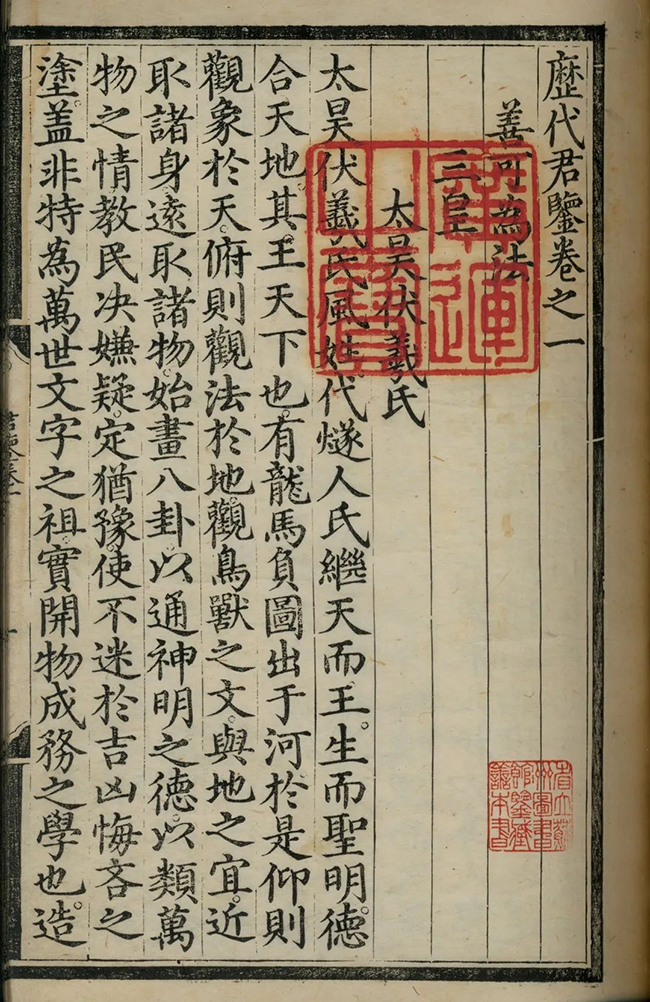 歷代君鑒卷之一
善可為法
三皇
太昊伏羲氏
太昊伏羲氏風姓代燧人氏繼天而王生而聖明德
合天地其王天下也有龍馬負圖出于河於是仰則
觀象於天俯則觀法於地觀鳥獸之文與地之宜近
取諸身遠取諸物始畫八卦以通神明之德以類萬
物之情教民决嫌疑定猶豫使不迷於吉凶悔吝之
塗蓋非特為萬世文字之祖實開物成務之學也造
廣運
之寶
省立蘇
州圖書
館鑒藏
善本書